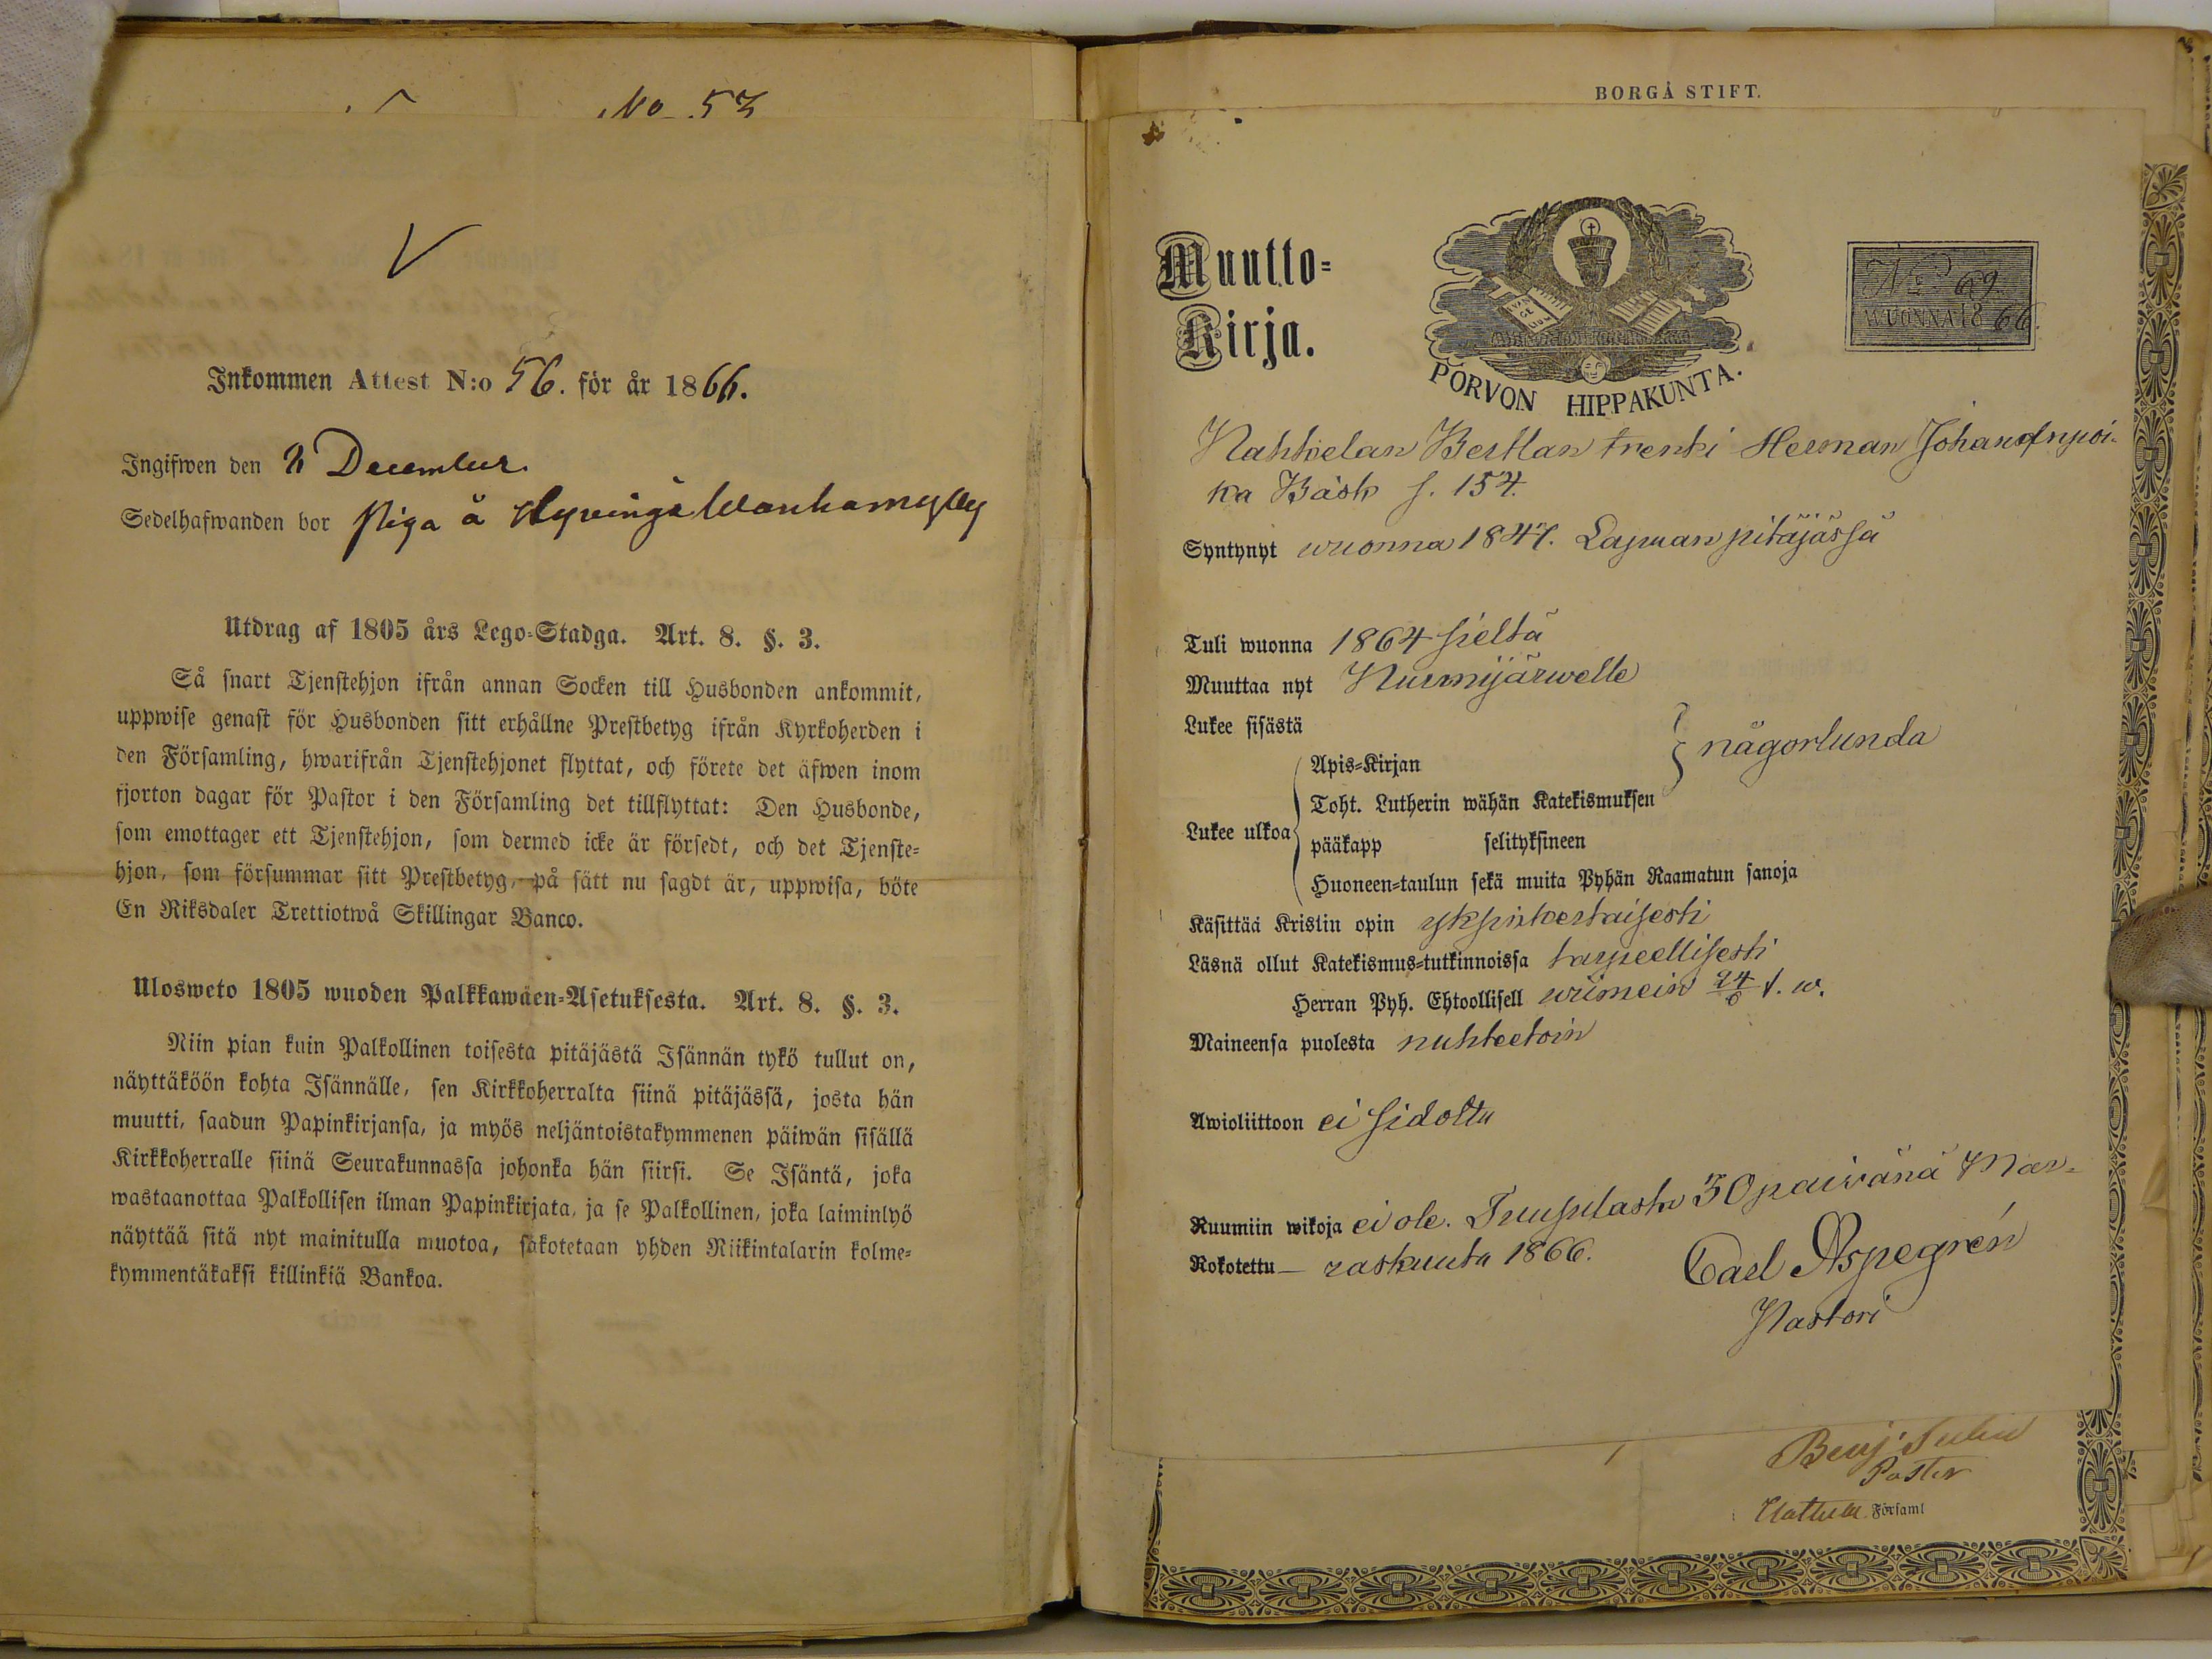 No 53
Inkommen Attest N:o 56. för år 1866.
Ingifwen den 2 December.
Sedelhafwanden bor Piga å Hyvingä Wanhamylly
Utdrag af 1805 års Lego-Stadga. Art. 8. §. 3.
Så snart Tjenstehjon ifrån annan Socken till Husbonden ankommit,
uppwise genast för Husbonden sitt erhållne Prestbetyg ifrån Kyrkoherden i
den Församling, hwarifrån Tjenstehjonet flyttat, och förete det äfwen inom
fjorton dagar för Pastor i den Församling det tillflyttat: Den Husbonde,
som emottager ett Tjenstehjon, som dermed icke är försedt, och det Tjenste-
hjon, som försummar sitt Prestbetyg, på sätt nu sagdt är, uppwisa, böte
En Riksdaler Trettiotwå Skillingar Banco.
Ulosweto 1805 wuoden Palkkawäen-Asetuksesta. Art. 8. §. 3.
Niin pian kuin Palkollinen toisesta pitäjästä Isännän tykö tullut on,
näyttäköön kohta Isännälle, sen Kirkkoherralta siinä pitäjässä, josta hän
muutti, saadun Papinkirjansa, ja myös neljäntoistakymmenen päiwän sisällä
Kirkkoherralle siinä Seurakunnassa johonka hän siirsi. Se Isäntä, joka
wastaanottaa Palkollisen ilman Papinkirjata, ja se Palkollinen, joka laiminlyö
näyttää sitä nyt mainitulla muotoa, sakotetaan yhden Riikintalarin kolme-
kymmentäkaksi killinkiä Bankoa.
BORGÅ STIFT.
Muutto-
Kirja.
PORVON HIPPAKUNTA.
No 69
WUONNA 1866.
Nahkelan Bertlan trenki Herman Johan
ka Bäck s. 154.
Syntynyt wuonna 1847. Lapuan pitäjässä
Tuli wuonna 1864 sieltä
Muuttaa nyt Nurmijärwelle
Lukee sisästä
Apis-Kirjan
någorlunda
Toht. Lutherin wähän Katekismuksen
Lukee ulkoa
pääkapp selityksineen
Huoneen-taulun sekä muita Pyhän Raamatun sanoja
Käsittää Kristin opin yksinkertaisesti
Läsnä ollut Katekismus-tutkinnoissa tarpeellisesti
Herran Pyh. Ehtoollisell wiimein 24/6 t. w.
Maineensa puolesta nuhteetoin
Awioliittoon ei sidottu
Ruumiin wikoja ei ole. Tuusulasta 30 päivänä Mar-
Rokotettu — raskuuta 1866.
Carl Aspegrén
Pastori
Benj
Pastor
Hattula Församl